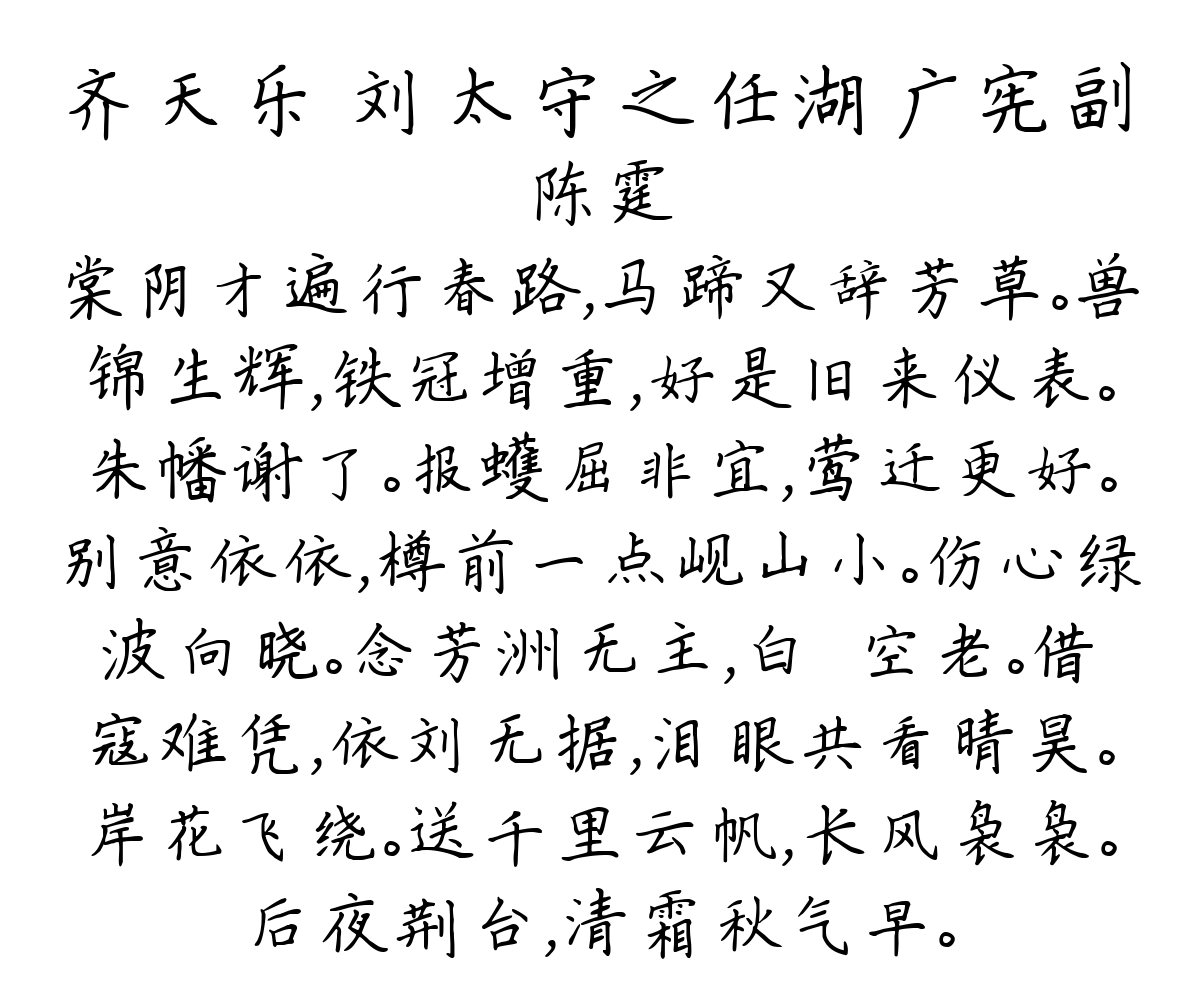 齐天乐 刘太守之任湖广宪副
陈霆
棠阴才遍行春路,马蹄又辞芳草。兽
锦生辉,铁冠增重,好是旧来仪表。
朱幡谢了。报蠖屈非宜,莺迁更好。
别意依依,樽前一点岘山小。伤心绿
波向晓。念芳洲无主,白 空老。借
寇难凭,依刘无据,泪眼共看晴昊。
岸花飞绕。送千里云帆,长风袅袅。
后夜荆台,清霜秋气早。